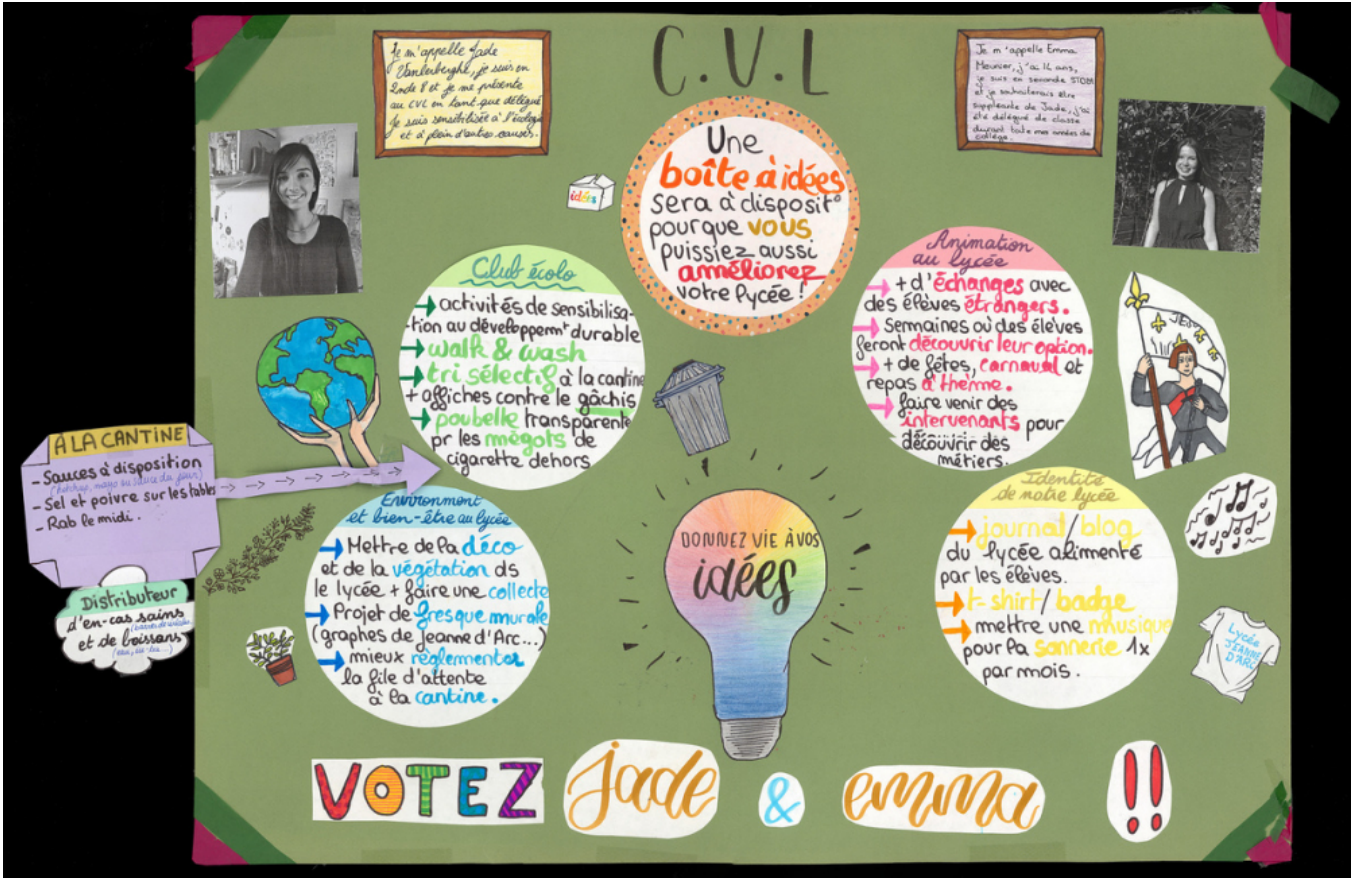 C.V.L
Je m'appelle Jade
Vanlerberghe, je suis en
2nde 8 et je me présente
au CVL en tant que délégué
Je suis sensibilisée à l'écologie
et à plein d'autres causes.
Je m'appelle Emma
Meunier, j'ai 14 ans,
je suis en seconde
et je souhaiterais être
suppléante de Jade, j'ai
été délégué de classe
durant toute mes années de
collège.
idées
Une
boîte à idées
sera à disposit°
pour que vous
puissiez aussi
améliorez
votre lycée !
Club écolo
→ activités de sensibilisa-
-tion au développemt durable
→ walk & wash
→ tri sélectif à la cantine
+ affiches contre le gâchis
→ poubelle transparente
pr les mégots de
cigarette dehors
Animation
au lycée
→ + d'échanges avec
des élèves étrangers.
→ Semaines où des élèves
feront découvrir leur option.
→ + de fêtes, carnaval et
repas à thème.
→ faire venir des
intervenants pour
découvrir des
métiers.
À LA CANTINE
- Sauces à disposition
(ketchup, mayo ou sauce du jour)
- Sel et poivre sur les tables
- Rab le midi.
Distributeur
d'en-cas sains
et de boissons
Environment
et bien-être au lycée
→ Mettre de la déco
et de la végétation ds
le lycée + faire une collecte
→ Projet de fresque murale
(graphes de Jeanne d'Arc...)
→ mieux règlementer
la file d'attente
à la cantine.
DONNEZ VIE À VOS
idées
Identité
de notre lycée
→ journal / blog
du lycée alimenté
par les élèves.
→ t-shirt / badge
→ mettre une musique
pour la sonnerie 1x
par mois.
Lycée
JEANNE
D'ARC
VOTEZ Jade & emma !!